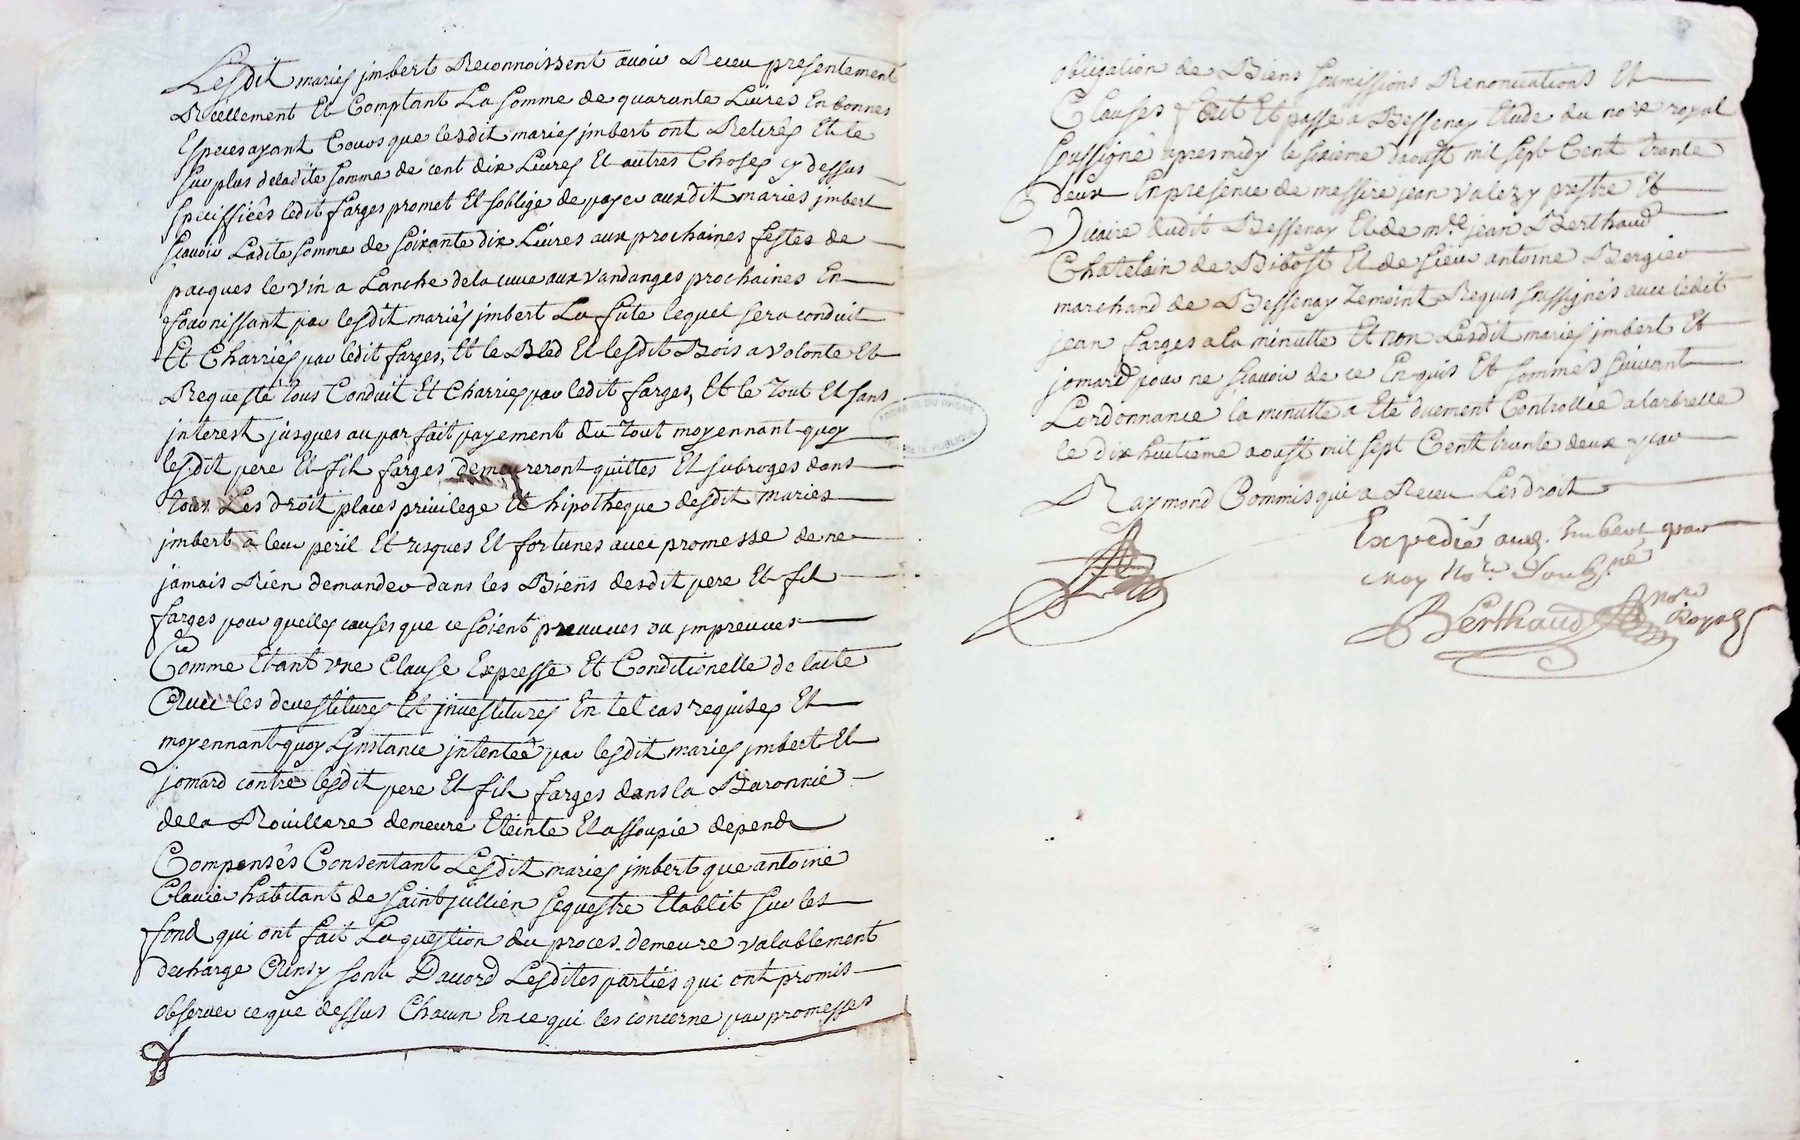 Lesdit mariés jmbert Reconnoissent avoir Receu presentement
Réellement Et Comptant La somme de quarante Livres En bonnes
Especes ayant Cours que lesdit mariés jmbert ont Retirés Et le
surplus deladite somme de cent dix Livres Et autres Choses cy dessus
speciffiées ledit farges promet Et soblige de payer auxdit mariés jmbert
scavoir Ladite somme de soixante dix Livres aux prochaines festes de
pacques le vin a Lanche dela cuve aux vandanges prochaines En
fournissant par lesdit mariés jmbert La fute lequel sera conduit
Et Charriés par ledit farges, Et le Bled Et lesdit Bois a volonte Et
Requeste tous Conduit Et Charriés par ledit farges, Et le tout Et sans
jnterest jusques au parfait payement du tout moyennant quoy
lesdit pere Et fil farges demeureront quittes Et subroges dans
tous Les droit places privilege Et hipotheque desdit mariés
jmbert a leur péril Et risques Et fortunes avec promesse de ne
jamais Rien demander dans les Biens desdit pere Et fil
farges pour quelles causes que ce soient preuvues ou jmpreuvues
Comme Etant vne Clause Expresse Et Conditionelle de lacte
Avec les devestitures Et jnvestitures En tel cas requises Et
moyennant quoy Ljnstance jntenteé par lesdit mariés jmbert Et
jomard contre lesdit pere Et fil farges dans la Baronnie
dela Rouillere demeure Eteinte Et assoupie depend
Compensés Consentant Lesdit mariés jmbert que antoine
Clavier habitant de saint jullien sequestre Etablit sur les
fond qui ont fait La question du proces demeure valablement
decharge Ainsy sont Daccord Lesdites parties qui ont promis
observer ce que dessus Chacun En ce qui les concerne par promesses
obligation de Biens soumissions Renonciations Et
Clauses fait Et passe a Bessenay Etude du nore royal
soussigné apres midy le sixieme daoust mil sept Cent trante
deux En presence de messire jean valezy prestre Et
Vicaire dudit Bessenay Et de mre jean Berthaud
Chatelain de Bibost Et de sieur antoine Bergier
marchand de Bessenay Temoint Requis soussignés avec ledit
jean farges a la minutte Et non Lesdit mariés jmbert Et
jomard pour ne scavoir de ce Enquis Et sommés suivant
Lordonnance la minutte a Eté duement Controllée a larbrelle
le dix huitieme aoust mil sept Cent trante deux par
Raymond Commis qui a Receu Les droit
Expedié aud. Imbert par
Moy Nore Soubzné
Berthaud nore Royal
ARCHIVES DU RHONE